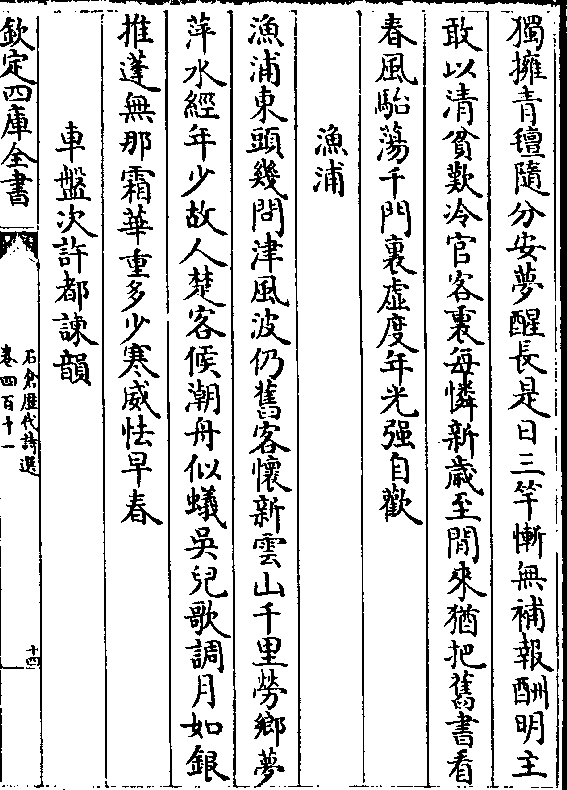 獨擁青氊隨分安夢醒長是日三竿慚無補報酬明主
敢以清貧歎冷官客裏每憐新歲至閒來猶把舊書看
春風駘蕩千門裏虚度年光强自歡
漁浦
漁浦東頭幾問津風波仍舊客懷新雲山千里勞鄉夢
萍水經年少故人楚客候潮舟似蟻吳兒歌調月如銀
推蓬無那霜華重多少寒威怯早春
車盤次許都諫韻
欽定四庫全書
石倉歷代詩選
卷四百十一
十四